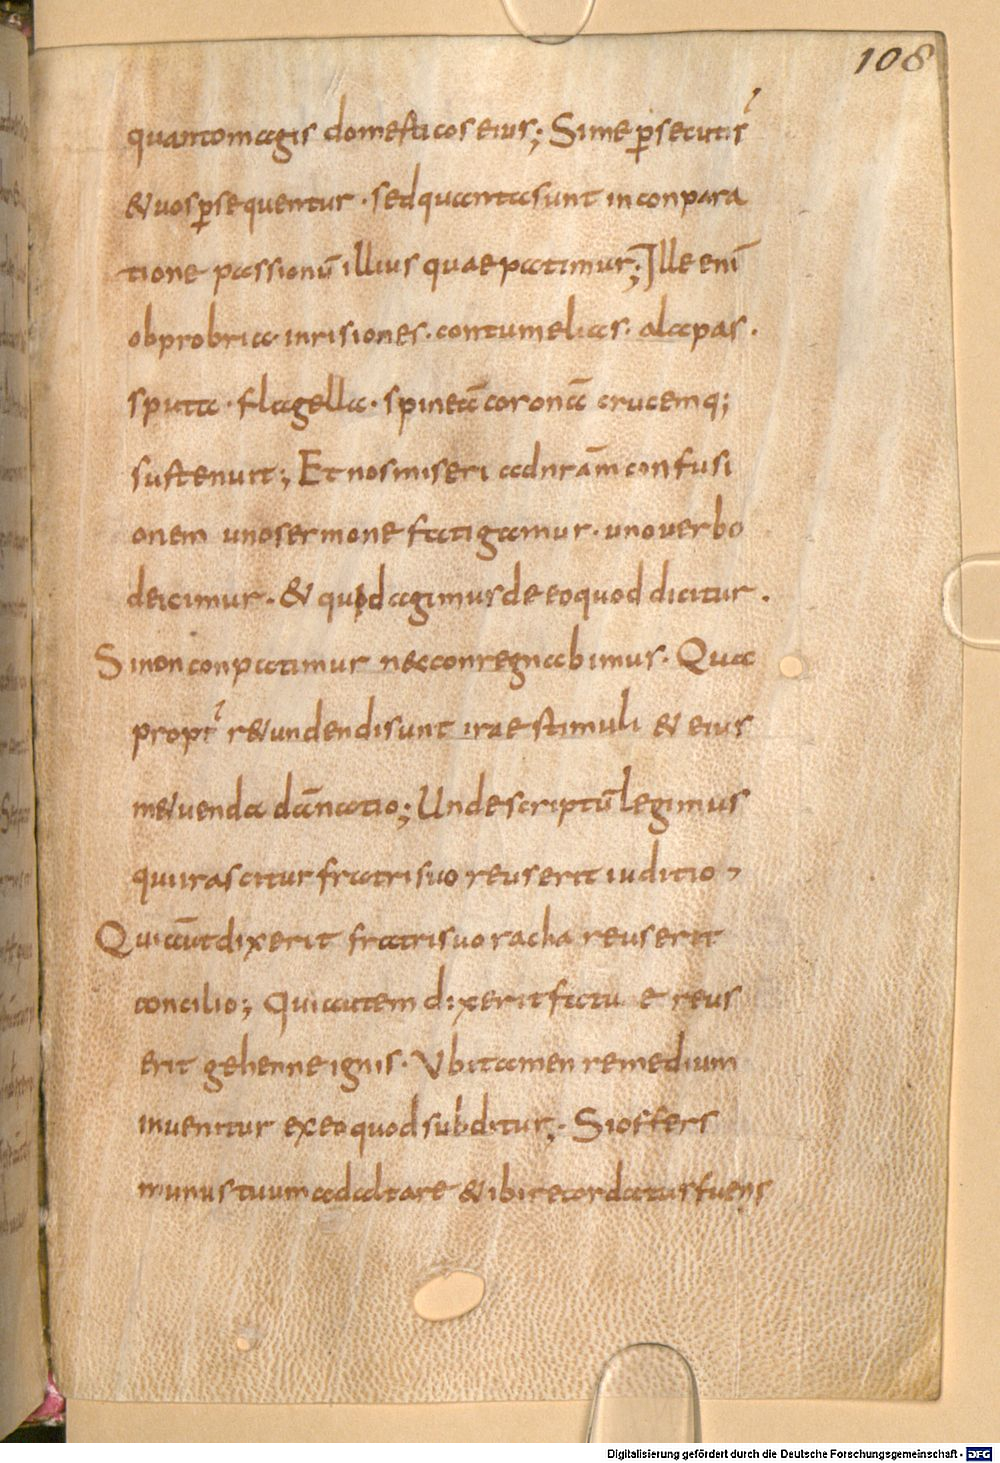 108
quanto magis domesticos eius; Si me ꝑsecuti s̄
& uos ꝑsequentur · sed quanta sunt in conpara
tione passionū illius quae patimur; Ille enī
obprobria · inrisiones · contumelias · alapas ·
sputa · flagella · spineā coronā crucemq;
sustenuit; Et nos miseri ad nr̄am confusi
onem uno sermone fatigamur · uno verbo
deicimur · & quid agimus de eo quod dicitur ·
Si non conpatimur nec conregnabimus · Qua
propt̄ r&undendi sunt irae stimuli & eius
m&uenda dānatio; Unde scriptū legimus
qui irascitur fratri suo reus erit iuditio
Qui aūt dixerit fratri suo racha reus erit
concilio; Qui autem dixerit fatue reus
erit gehenne ignis · Vbi tamen remedium
inuenitur ex eo quod subditur; Si offers
munus tuum ad altare & ibi recordatus fueris
Digitalisierung gefördert durch die Deutsche Forschungsgemeinschaft - DFG